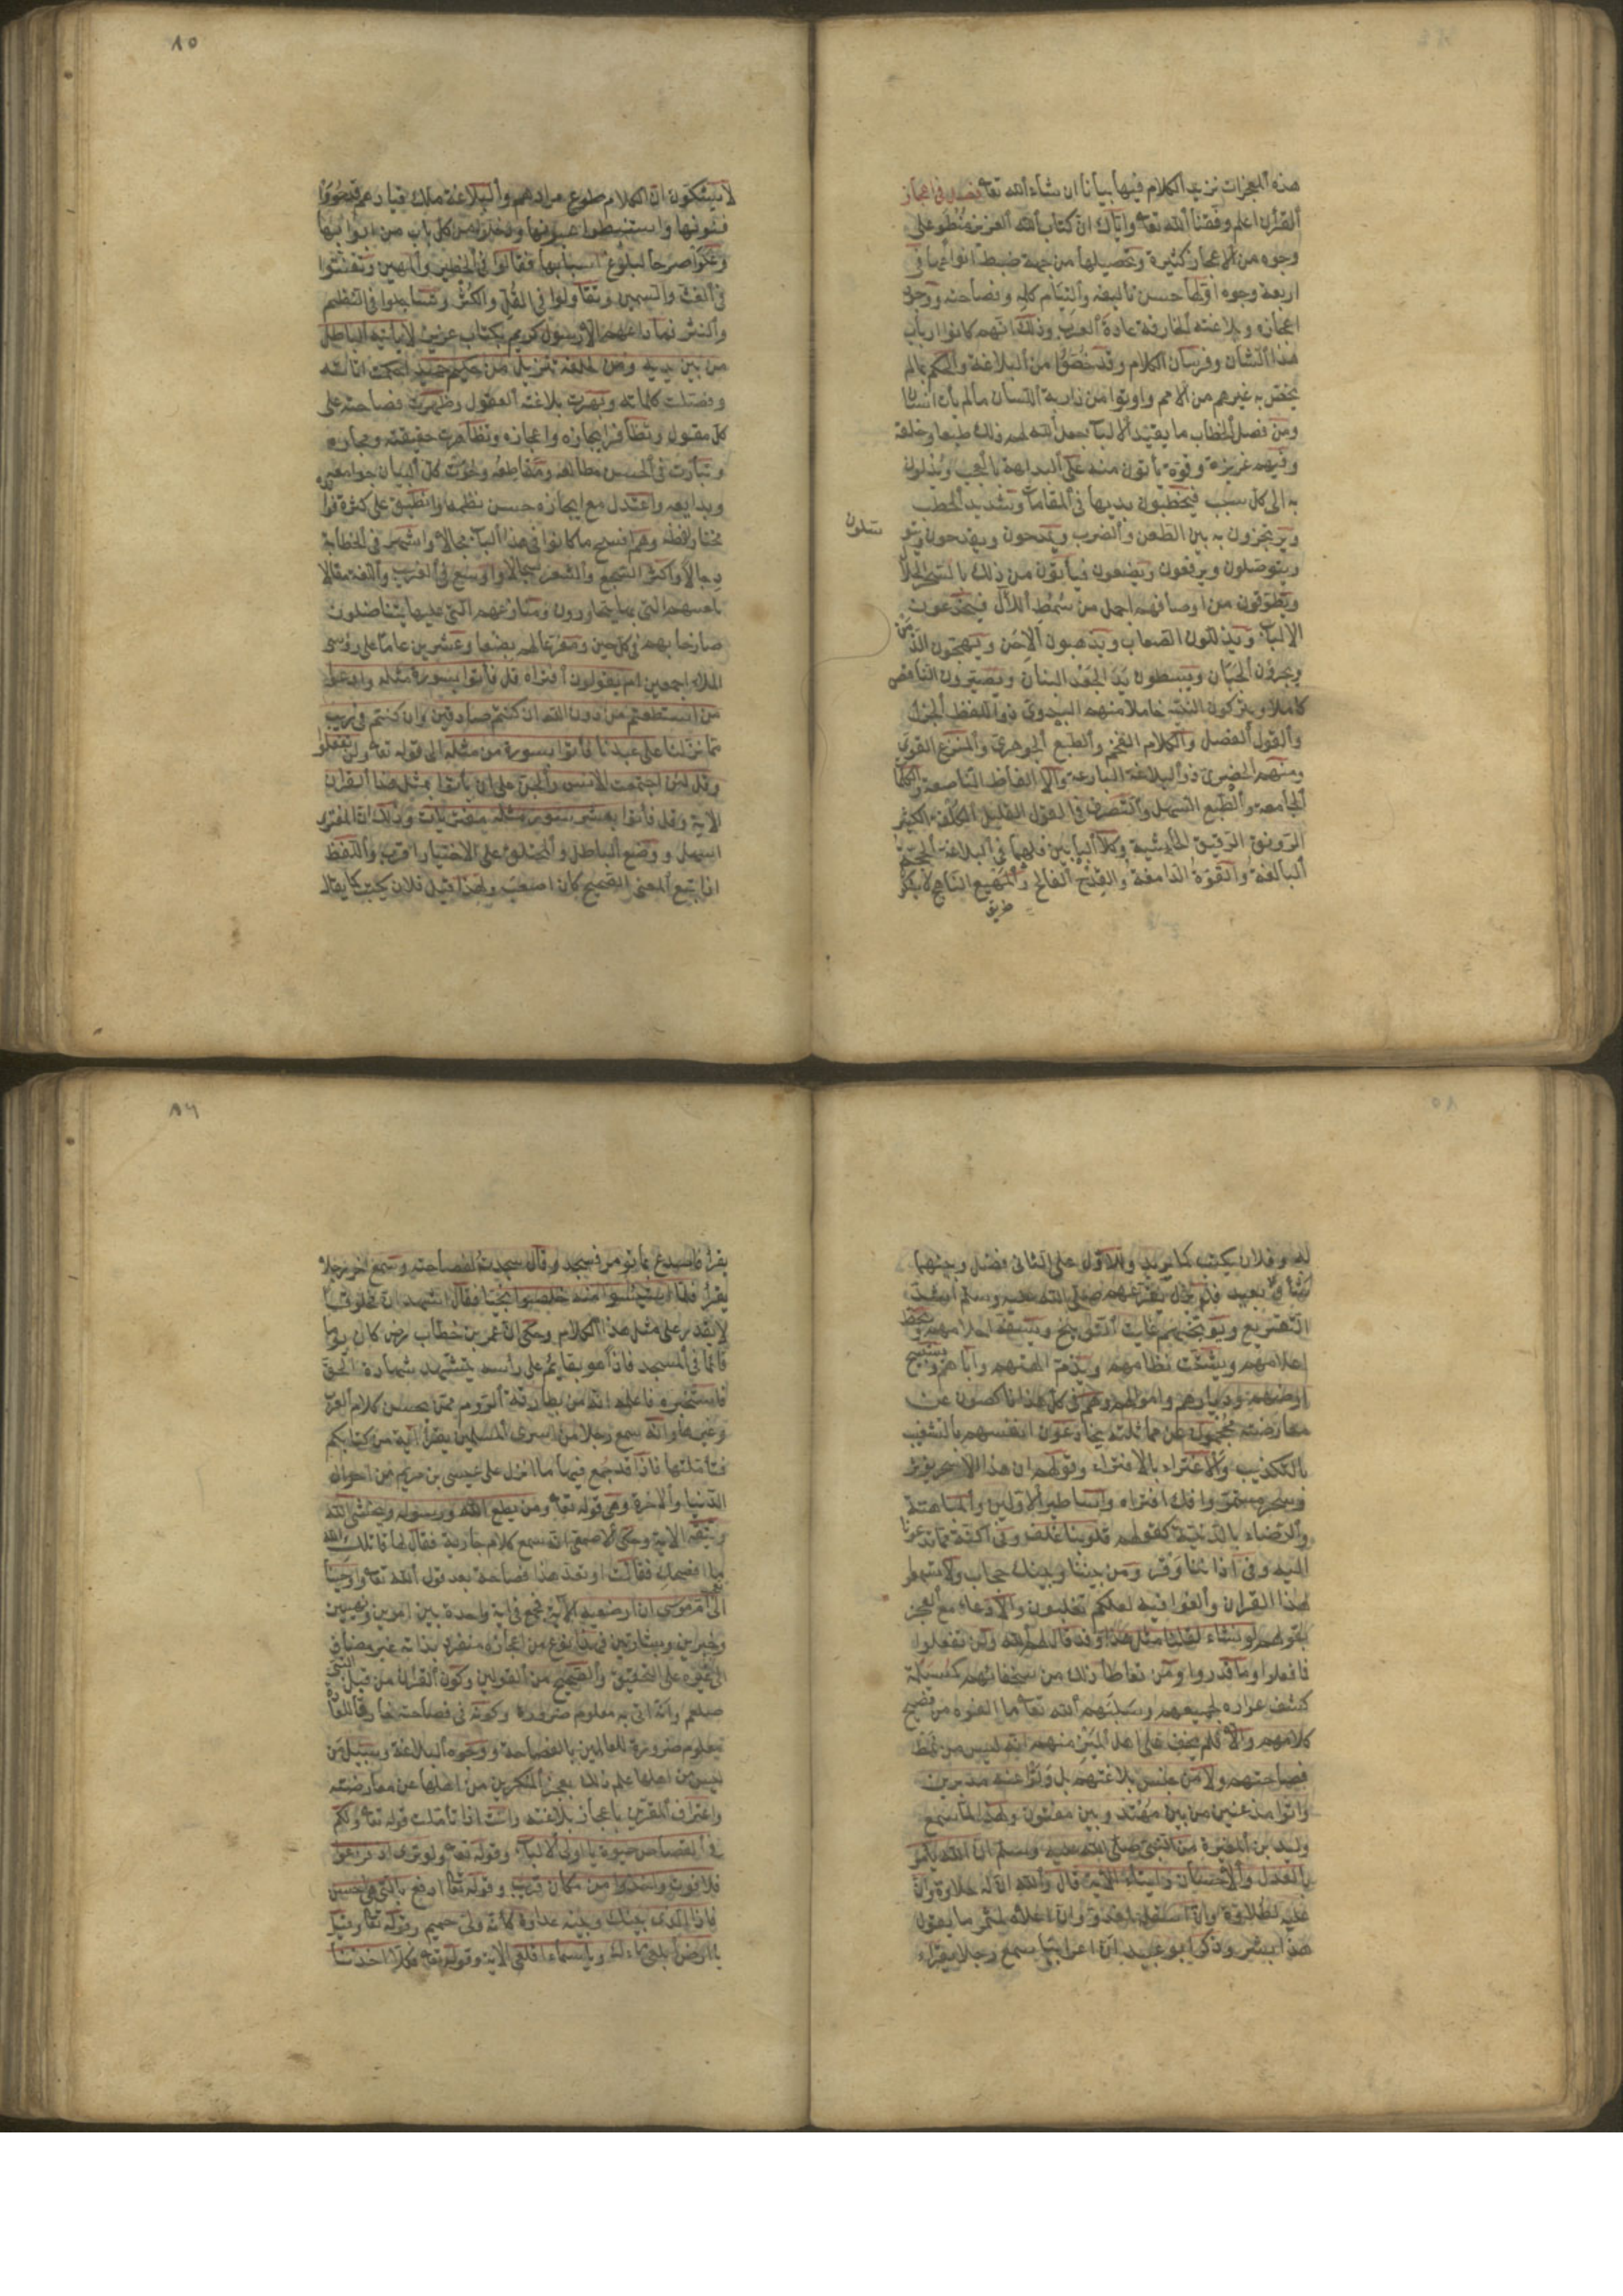 هذه المعجزات نزيد الكلام فيها بيانا ان شاء الله تعا فصل في اعجاز
القرآن اعلم وفقنا الله تعا واياك ان كتاب الله العزيز منطو على
وجوه من الاعجاز كثيرة وتحصيلها من جهة ضبط انواعها في
اربعة وجوه اولها حسن تأليفه والتئام كلمه وفصاحته ووجوه
اعجازه وبلاغته الخارقة عادة العرب وذلك انهم كانوا ارباب
هذا الشان وفرسان الكلام وقد خصوا من البلاغة والحكم بما لم
يخص به غيرهم من الامم واوتوا من ذرابة اللسان ما لم يؤت انسان
ومن فصل الخطاب ما يقيد الالباب جعل الله لهم ذلك طبعا وخلقة
وفيهم غريزة وقوة يأتون منه على البداهة بالعجب ويدلون
به الى كل سبب فيخطبون بديها في المقامات وشديد الخطب
ويرتجزون به بين الطعن والضرب ويمدحون ويقدحون ويتو
سلون
ويتوصلون ويرفعون ويضعون فيأتون من ذلك بالسحر الحلال
ويطوقون من اوصافهم اجمل من سمط اللآل فيخدعون
الالباب ويذللون الصعاب ويذهبون الاحن ويهيجون الدمن
ويجرؤن الجبان ويبسطون يد الجعد البنان ويصيرون الناقص
كاملا ويتركون النبيه خاملا منهم البدوي ذو اللفظ الجزل
والقول الفصل والكلام الفخم والطبع الجوهري والمنزع القوي
ومنهم الحضري ذو البلاغة البارعة والالفاظ الناصعة والكلمات
الجامعة والطبع السهل والتصرف في القول القليل الكلفة الكثير
الرونق الرقيق الحاشية وكلا البابين فلهما في البلاغة الحجة
البالغة والقوة الدامغة والقدح الفالج والمهيع الناهج لا يشكو
طريق
٨٥
لا يشكون ان الكلام طوع مرادهم والبلاغة ملك قيادهم قد حووا
فنونها واستنبطوا عيونها ودخلوا من كل باب من ابوابها
وعلوا صرحا لبلوغ اسبابها فقالوا في الخطير والمهين وتفننوا
في الغث والسمين وتقاولوا في القل والكثر وتساجلوا في النظم
والنثر فما راعهم الا رسول كريم بكتاب عزيز لا يأتيه الباطل
من بين يديه ومن خلفه تنزيل من حكيم حميد احكمت اياته
وفصلت كلماته وبهرت بلاغته العقول وظهرت فصاحته على
كل مقول وتظافر ايجازه واعجازه وتظاهرت حقيقته ومجازه
وتبارت في الحسن مطالعه ومقاطعه وحوت كل البيان جوامعه
وبدايعه واعتدل مع ايجازه حسن نظمه وانطبق على كثرة فوا
مختار لفظه وهم افسح ما كانوا في هذا الباب مجالا واشهر في الخطابة
رجالا واكثر السجع والشعر سجالا واوسع في الغريب واللغة مقالا
بلغتهم التي بها يتحاورون ومنازعهم التي عليها يتناضلون
صارخا بهم في كل حين ومقرعا لهم بضعا وعشرين عاما على رؤس
الملا اجمعين ام يقولون افتراه قل فأتوا بسورة مثله وادعوا
من استطعتم من دون الله ان كنتم صادقين وان كنتم في ريب
مما نزلنا على عبدنا فأتوا بسورة من مثله الى قوله تعا ولن تفعلوا
وقل لئن اجتمعت الانس والجن على ان يأتوا بمثل هذا القرآن
الاية وقل فأتوا بعشر سور مثله مفتريات وذلك ان المفترى
اسهل ووضع الباطل والمختلق على الاختيار اقرب واللفظ
اذا تبع المعنى الصحيح كان اصعب ولهذا قيل فلان يكتب كما يقال
٨٥
له وفلان يكتب كما يريد وللاول على الثاني فضل وبينهما
شأو بعيد فلم يزل يقرعهم صلى الله عليه وسلم اشد
التقريع ويوبخهم غاية التوبيخ ويسفه احلامهم ويحط
اعلامهم ويشتت نظامهم ويذم الهتهم وآباءهم ويستبيح
ارضهم وديارهم واموالهم وهم في كل هذا ناكصون عن
معارضته محجمون عن مماثلته يخادعون انفسهم بالتشغيب
بالتكذيب والاغتراء بالافتراء وقولهم ان هذا الا سحر يؤثر
وسحر مستمر وافك افتراه واساطير الاولين والمباهتة
والرضاء بالدنية كقولهم قلوبنا غلف وفي اكنة مما تدعونا
اليه وفي آذاننا وقر ومن بيننا وبينك حجاب ولا تسمعوا
لهذا القرآن والغوا فيه لعلكم تغلبون والادعاء مع العجز
بقولهم لو نشاء لقلنا مثل هذا وقد قال لهم الله ولن تفعلوا
فما فعلوا وما قدروا ومن تعاطا ذلك من سخفائهم كمسيلمة
كشف عواره لجميعهم وسلبهم الله تعا ما الفوه من فصيح
كلامهم والا فلم يخف على اهل الميز منهم انه ليس من نمط
فصاحتهم ولا من جنس بلاغتهم بل ولوا عنه مدبرين
واتوا مذعنين من بين مهتد وبين مفتون ولهذا لما سمع
وليد بن المغيرة من النبي صلى الله عليه وسلم ان الله يأمر
بالعدل والاحسان وايتاء الاية قال والله ان له حلاوة وان
عليه لطلاوة وان اسفله لمغدق وان اعلاه لمثمر ما يقول
هذا بشر وذكر ابو عبيد ان اعرابيا سمع رجلا يقراء
٨٦
يقرأ فاصدع بما تؤمر فسجد وقال سجدت لفصاحته وسمع آخر رجلا
يقرأ فلما استيئسوا منه خلصوا نجيا فقال اشهد ان مخلوقا
لا يقدر على مثل هذا الكلام وحكى ان عمر بن خطاب رض كان يوما
نائما في المسجد فاذا هو بقائم على رأسه يتشهد شهادة الحق
فاستخبره فاعلمه انه من بطارقة الروم ممن يحسن كلام العرب
وغيرها وانه سمع رجلا من اسرى المسلمين يقرأ آية من كتابكم
فتأملتها فاذا قد جمع فيها ما انزل على عيسى بن مريم من احوال
الدنيا والآخرة وهي قوله تعا ومن يطع الله ورسوله ويخش الله
ويتقه الاية وحكى الاصمعي انه سمع كلام جارية فقال لها قاتلك الله
ما افصحك فقالت اوتعد هذا فصاحة بعد قول الله تعا واوحينا
الى ام موسى ان ارضعيه الآية فجمع في آية واحدة بين امرين ونهيين
وخبرين وبشارتين فهذا نوع من اعجازه منفرد بذاته غير مضاف
الى غيره على التحقيق والصحيح من القولين وكون القرآن من قبل النبي
صلعم وانه اتى به معلوم ضرورة وكونه في فصاحته خارقا للعادة
معلوم ضرورة للعالمين بالفصاحة ووجوه البلاغة وسبيل من
ليس من اهلها علم ذلك بعجز المنكرين من اهلها عن معارضته
واعتراف المقرين باعجاز بلاغته وانت اذا تأملت قوله تعا ولكم
في القصاص حيوة يا اولي الالباب وقوله تعا ولو ترى اذ فزعوا
فلا فوت واخذوا من مكان قريب وقوله تعا ادفع بالتي هي احسن
فاذا الذي بينك وبينه عداوة كأنه ولي حميم وقوله تعا وقيل
يا ارض ابلعي ماءك ويا سماء اقلعي الاية وقوله تعا فكلا اخذنا